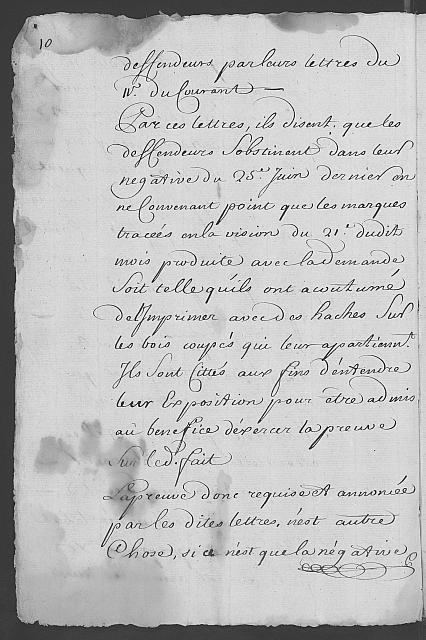 10
deffendeurs par leurs lettres du
IV.e du Courant —
Par ces lettres, ils disent que les
deffendeurs S'obstinent dans leur
negative du 25.e Juin dernier en
ne Convenant point que les marques
tracées en la vision du 21.e dudit
mois produite avec la demande
Soit telle qu'ils ont acoutumé
de l'Imprimer avec des haches Sur
les bois coupés qui leur apartienn.t
Ils sont Cittés aux fins d'éntendre
leur Exposition pour être admis
au benefice d'éxercer la preuve
Sur led. fait
La preuve donc requise et annoncée
par les dites lettres, n'est autre
Chose, si ce n'est que la négative